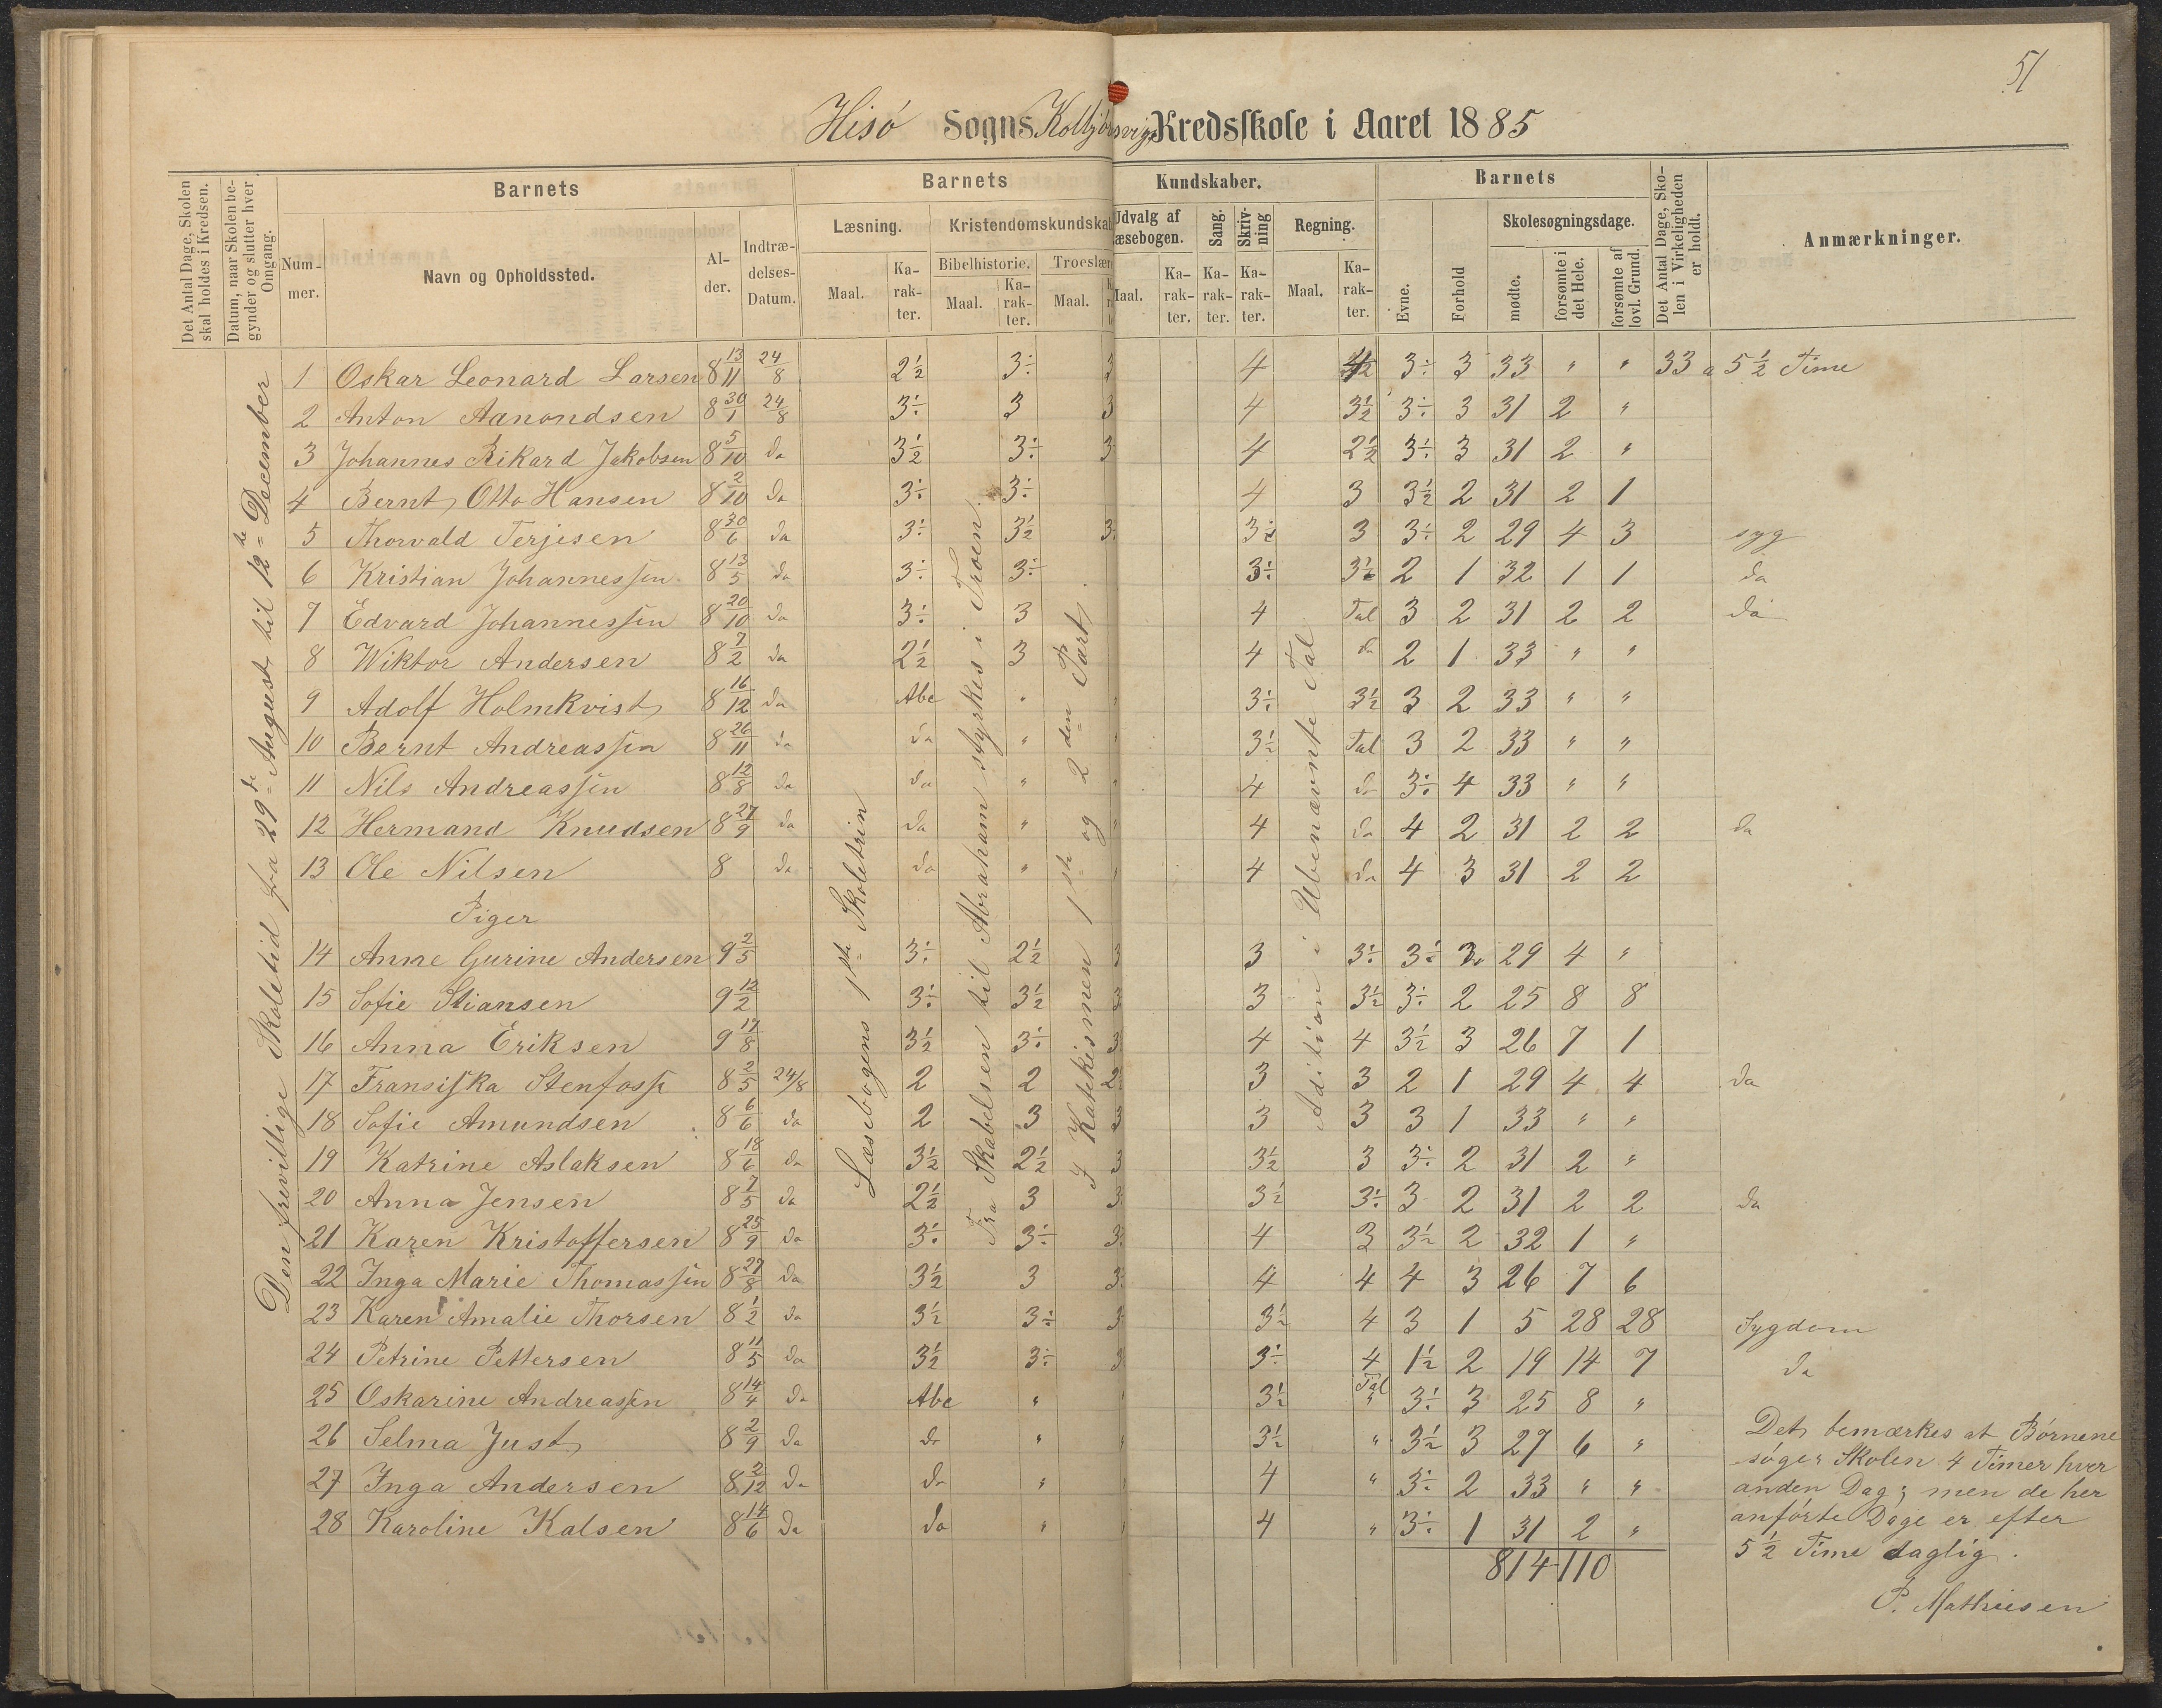 51
Hisø Sogns Kolbjørnsvigs Kredsskole i Aaret 1885
Det Antal Dage, Skolen skal holdes i Kredsen.
Datum, naar Skolen begynder og slutter hver Omgang.
Barnets
Nummer.
Navn og Opholdssted.
Alder.
Indtrædelses-Datum.
Barnets Kundskaber.
Læsning.
Maal.
Karakter.
Kristendomskundskab
Bibelhistorie.
Maal.
Karakter.
Troeslære
Maal.
Udvalg af Læsebogen.
Maal.
Karakter.
Sang.
Karakter.
Skrivning
Karakter.
Regning.
Maal.
Karakter.
Barnets
Evne.
Forhold
Skolesøgningsdage.
mødte.
forsømte i det Hele.
forsømte af lovl. Grund.
Det Antal Dage, Skolen i Virkeligheden er holdt.
Anmærkninger.
Den frivillige Skoletid fra 29de August til 12te December
Læsebogens 1ste Skoletrin
Fra Skabelsen til Abraham styrkes i Troen.
I Katekismen 1ste og 2den Part.
Adition i Ubenævnte Tal
1 Oskar Leonard Larsen 8 13/11 24/8 2½ 3÷ 3 4 4½ 3÷ 3 33 " " 33 a 5½ Time
2 Anton Aanondsen 8 30/1 24/8 3÷ 3 3 4 3½ 3÷ 3 31 2 "
3 Johannes Rikard Jakobsen 8 5/10 do 3½ 3÷ 3 4 2½ 3÷ 3 31 2 "
4 Bernt Otto Hansen 8 2/10 do 3÷ 3÷ 4 3 3½ 2 31 2 1
5 Thorvald Terjesen 8 30/6 do 3÷ 3½ 3÷ 3½ 3 3÷ 2 29 4 3 syg
6 Kristian Johannessen 8 13/5 do 3÷ 3÷ 3÷ 3½ 2 1 32 1 1 do
7 Edvard Johannessen 8 20/10 do 3÷ 3 4 Tal 3 2 31 2 2 do
8 Wiktor Andersen 8 7/2 do 2½ 3 4 do 2 1 33 " "
9 Adolf Holmkvist 8 16/12 do Abc " " 3÷ 3½ 3 2 33 " "
10 Bernt Andreassen 8 26/11 do do " " 3½ Tal 3 2 33 " "
11 Nils Andreassen 8 12/8 do do " " 4 do 3÷ 4 33 " "
12 Hermand Knudsen 8 27/9 do do " " 4 do 4 2 31 2 2 do
13 Ole Nilsen 8 do do " " 4 do 4 3 31 2 2
Piger
14 Anne Gurine Andersen 9 2/5 3÷ 2½ 3 3 3÷ 3÷ 3 29 4 "
15 Sofie Stiansen 9 12/2 3÷ 3½ 3 3 3½ 3÷ 2 25 8 8
16 Anna Eriksen 9 17/8 3½ 3÷ 3 4 4 3½ 3 26 7 1
17 Fransiska Stenfoss 8 2/5 24/8 2 2 2½ 3 3 2 1 29 4 4 do
18 Sofie Amundsen 8 6/6 do 2 3 3 3 3 3 1 33 " "
19 Katrine Aslaksen 8 18/6 do 3½ 2½ 3 3½ 3 3÷ 2 31 2 "
20 Anna Jensen 8 7/5 do 2½ 3 3÷ 3½ 3÷ 3 2 31 2 2 do
21 Karen Kristoffersen 8 25/9 do 3÷ 3÷ 3÷ 4 3 3½ 2 32 1 "
22 Inga Marie Thomassen 8 27/8 do 3½ 3 3÷ 4 4 4 3 26 7 6
23 Karen Amalie Thorsen 8 1/2 do 3½ 3÷ 3÷ 3½ 4 3 1 5 28 28 Sygdom
24 Petrine Pettersen 8 11/5 do 3½ 3÷ 3 3÷ 4 1½ 2 19 14 7 do
25 Oskarine Andreassen 8 14/4 do Abc " " 3½ Tal " 3÷ 3 25 8 "
26 Selma Just 8 2/9 do do " " 3½ " 3½ 3 27 6 "
27 Inga Andersen 8 2/12 do do " " 4 " 3÷ 2 33 " "
28 Karoline Kalsen 8 14/6 do do " " 4 " 3÷ 1 31 2 "
814 110
Det bemærkes at Børnene
søger Skolen 4 Timer hver
anden Dag; men de her
anførte Dage er efter
5½ Time daglig.
P. Mathiesen